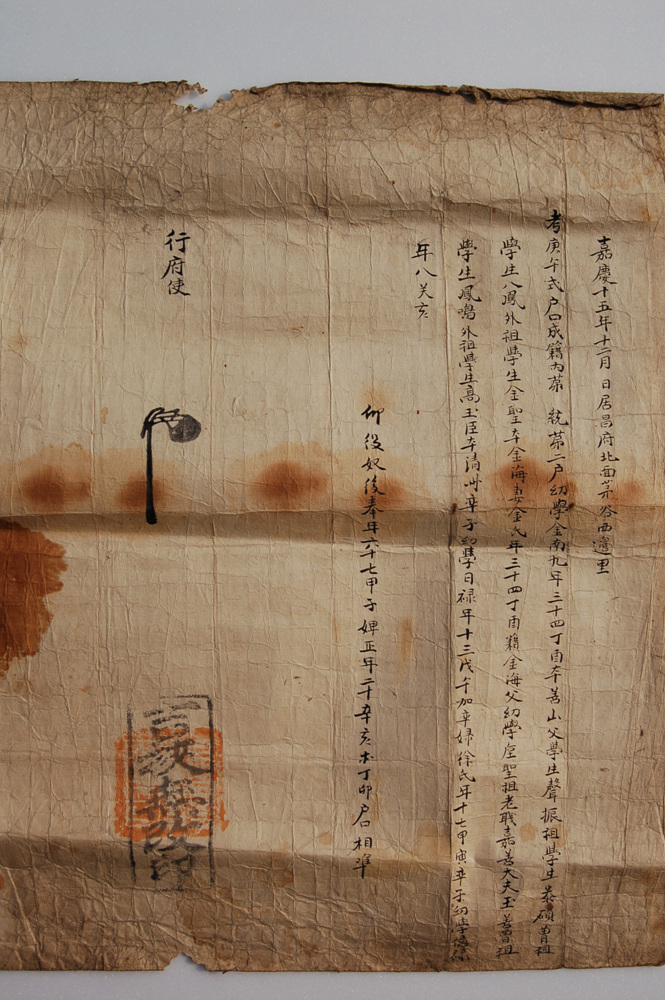 嘉慶十五年十二月 日居昌府北面 谷西邊里
考庚午式戶口成籍內第 統第二戶幼學金南九年三十四丁酉本善山父學生聲振祖學生 碩曾祖
學生八鳳外祖學生金聖 本金海妻金氏年三十四丁酉籍金海父幼學 聖祖老職嘉善大夫玉 曾祖
學生鳳鳴外祖學生高玉臣本淸州率子幼學日祿年十三戊午加率婦徐氏年十七甲寅率子幼學
年八癸亥
仰役奴後奉年六十七甲子婢正年二十辛亥 丁卯戶口相準
行府使